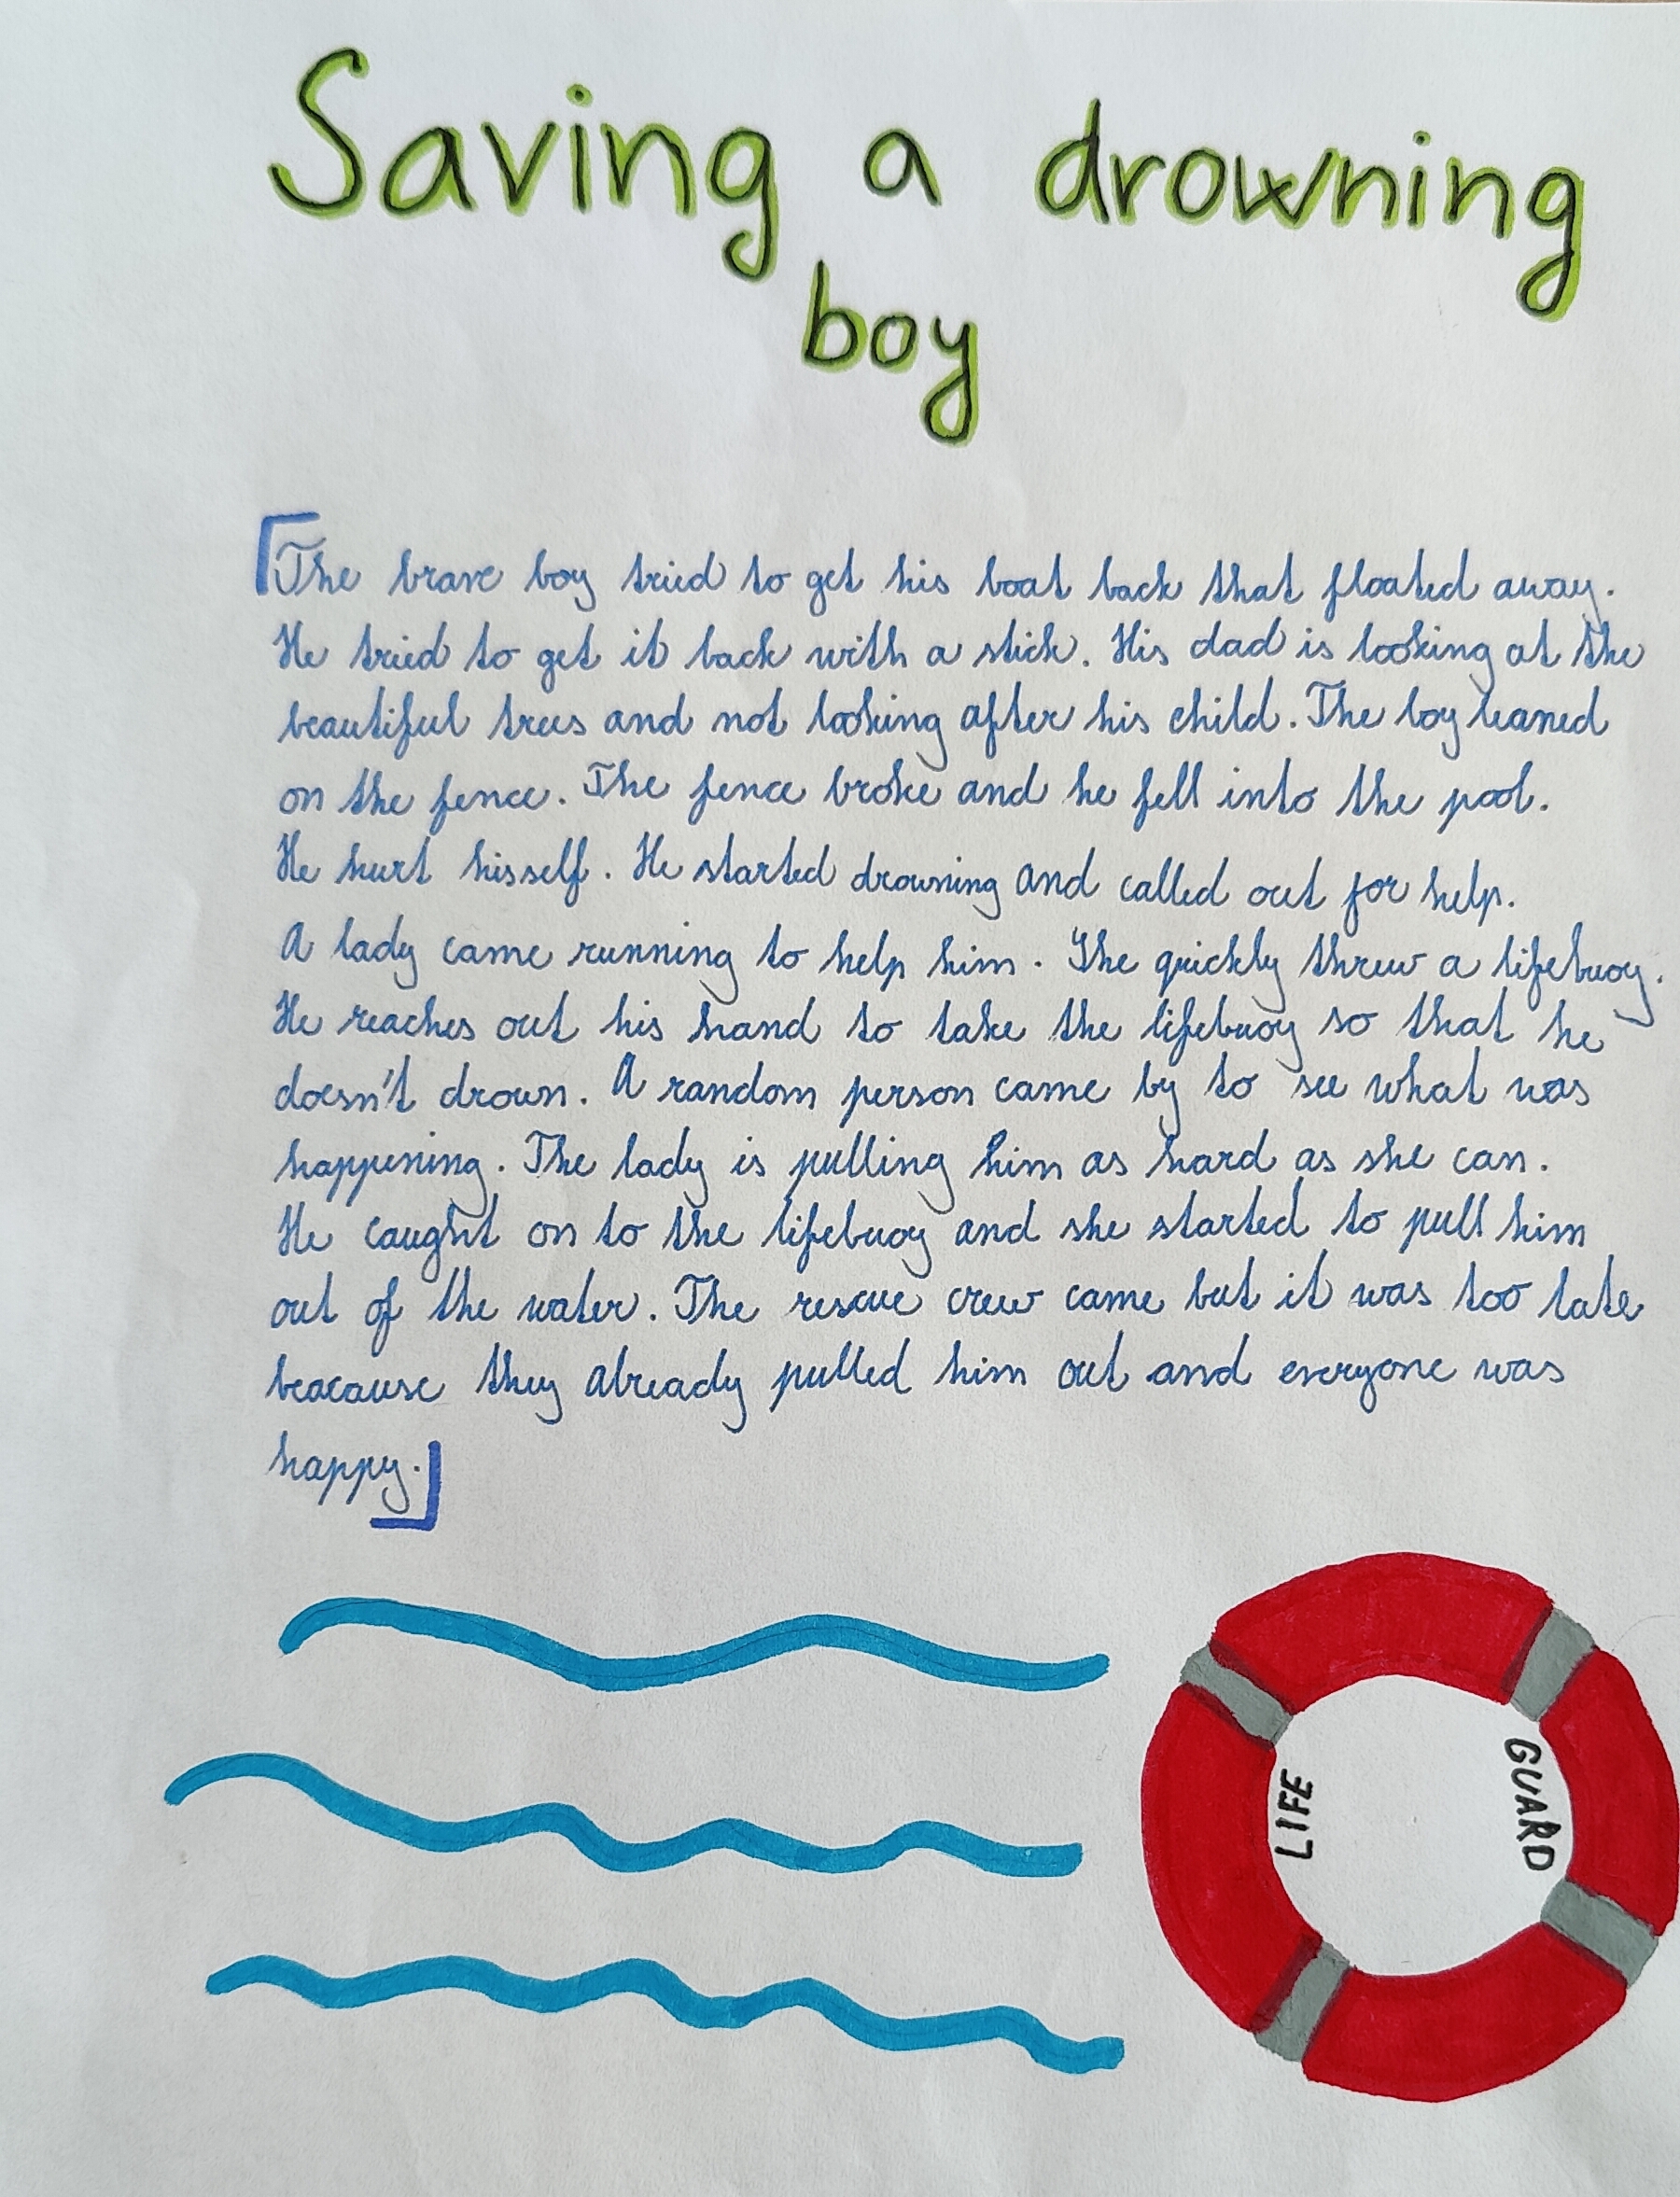 Saving a drowning
boy
The brave boy tried to get his boat back that floated away.
He tried to get it back with a stick. His dad is looking at the
beautiful trees and not looking after his child. The boy leaned
on the fence. The fence broke and he fell into the pool.
He hurt hisself. He started drowning and called out for help.
A lady came running to help him. The quickly threw a lifebuoy.
He reaches out his hand to take the lifebuoy so that he
doesn't drown. A random person came by to see what was
happening. The lady is pulling him as hard as she can.
He caught on to the lifebuoy and she started to pull him
out of the water. The rescue crew came but it was too late
beacause they already pulled him out and everyone was
happy.
LIFE
GUARD